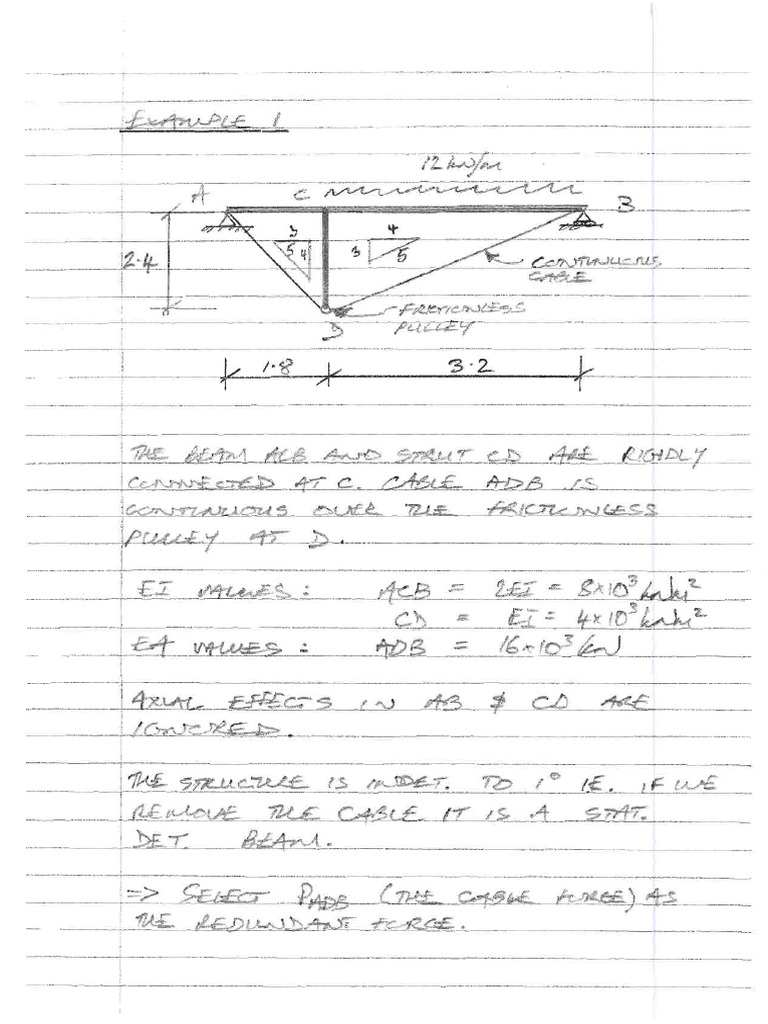 EXAMPLE 1
12 kN/m
A C B
3 4
5 4 3 5
2.4
CONTINUOUS
CABLE
FRICTIONLESS
PULLEY
D
1.8 3.2
THE BEAM ACB AND STRUT CD ARE RIGIDLY
CONNECTED AT C. CABLE ADB IS
CONTINUOUS OVER THE FRICTIONLESS
PULLEY AT D.
EI VALUES: ACB = 2EI = 8×10³ kNm²
CD = EI = 4×10³ kNm²
EA VALUES: ADB = 16×10³ kN
AXIAL EFFECTS IN AB & CD ARE
IGNORED.
THE STRUCTURE IS INDET. TO 1° IE. IF WE
REMOVE THE CABLE IT IS A STAT.
DET. BEAM.
=> SELECT PADB (THE CABLE FORCE) AS
THE REDUNDANT FORCE.